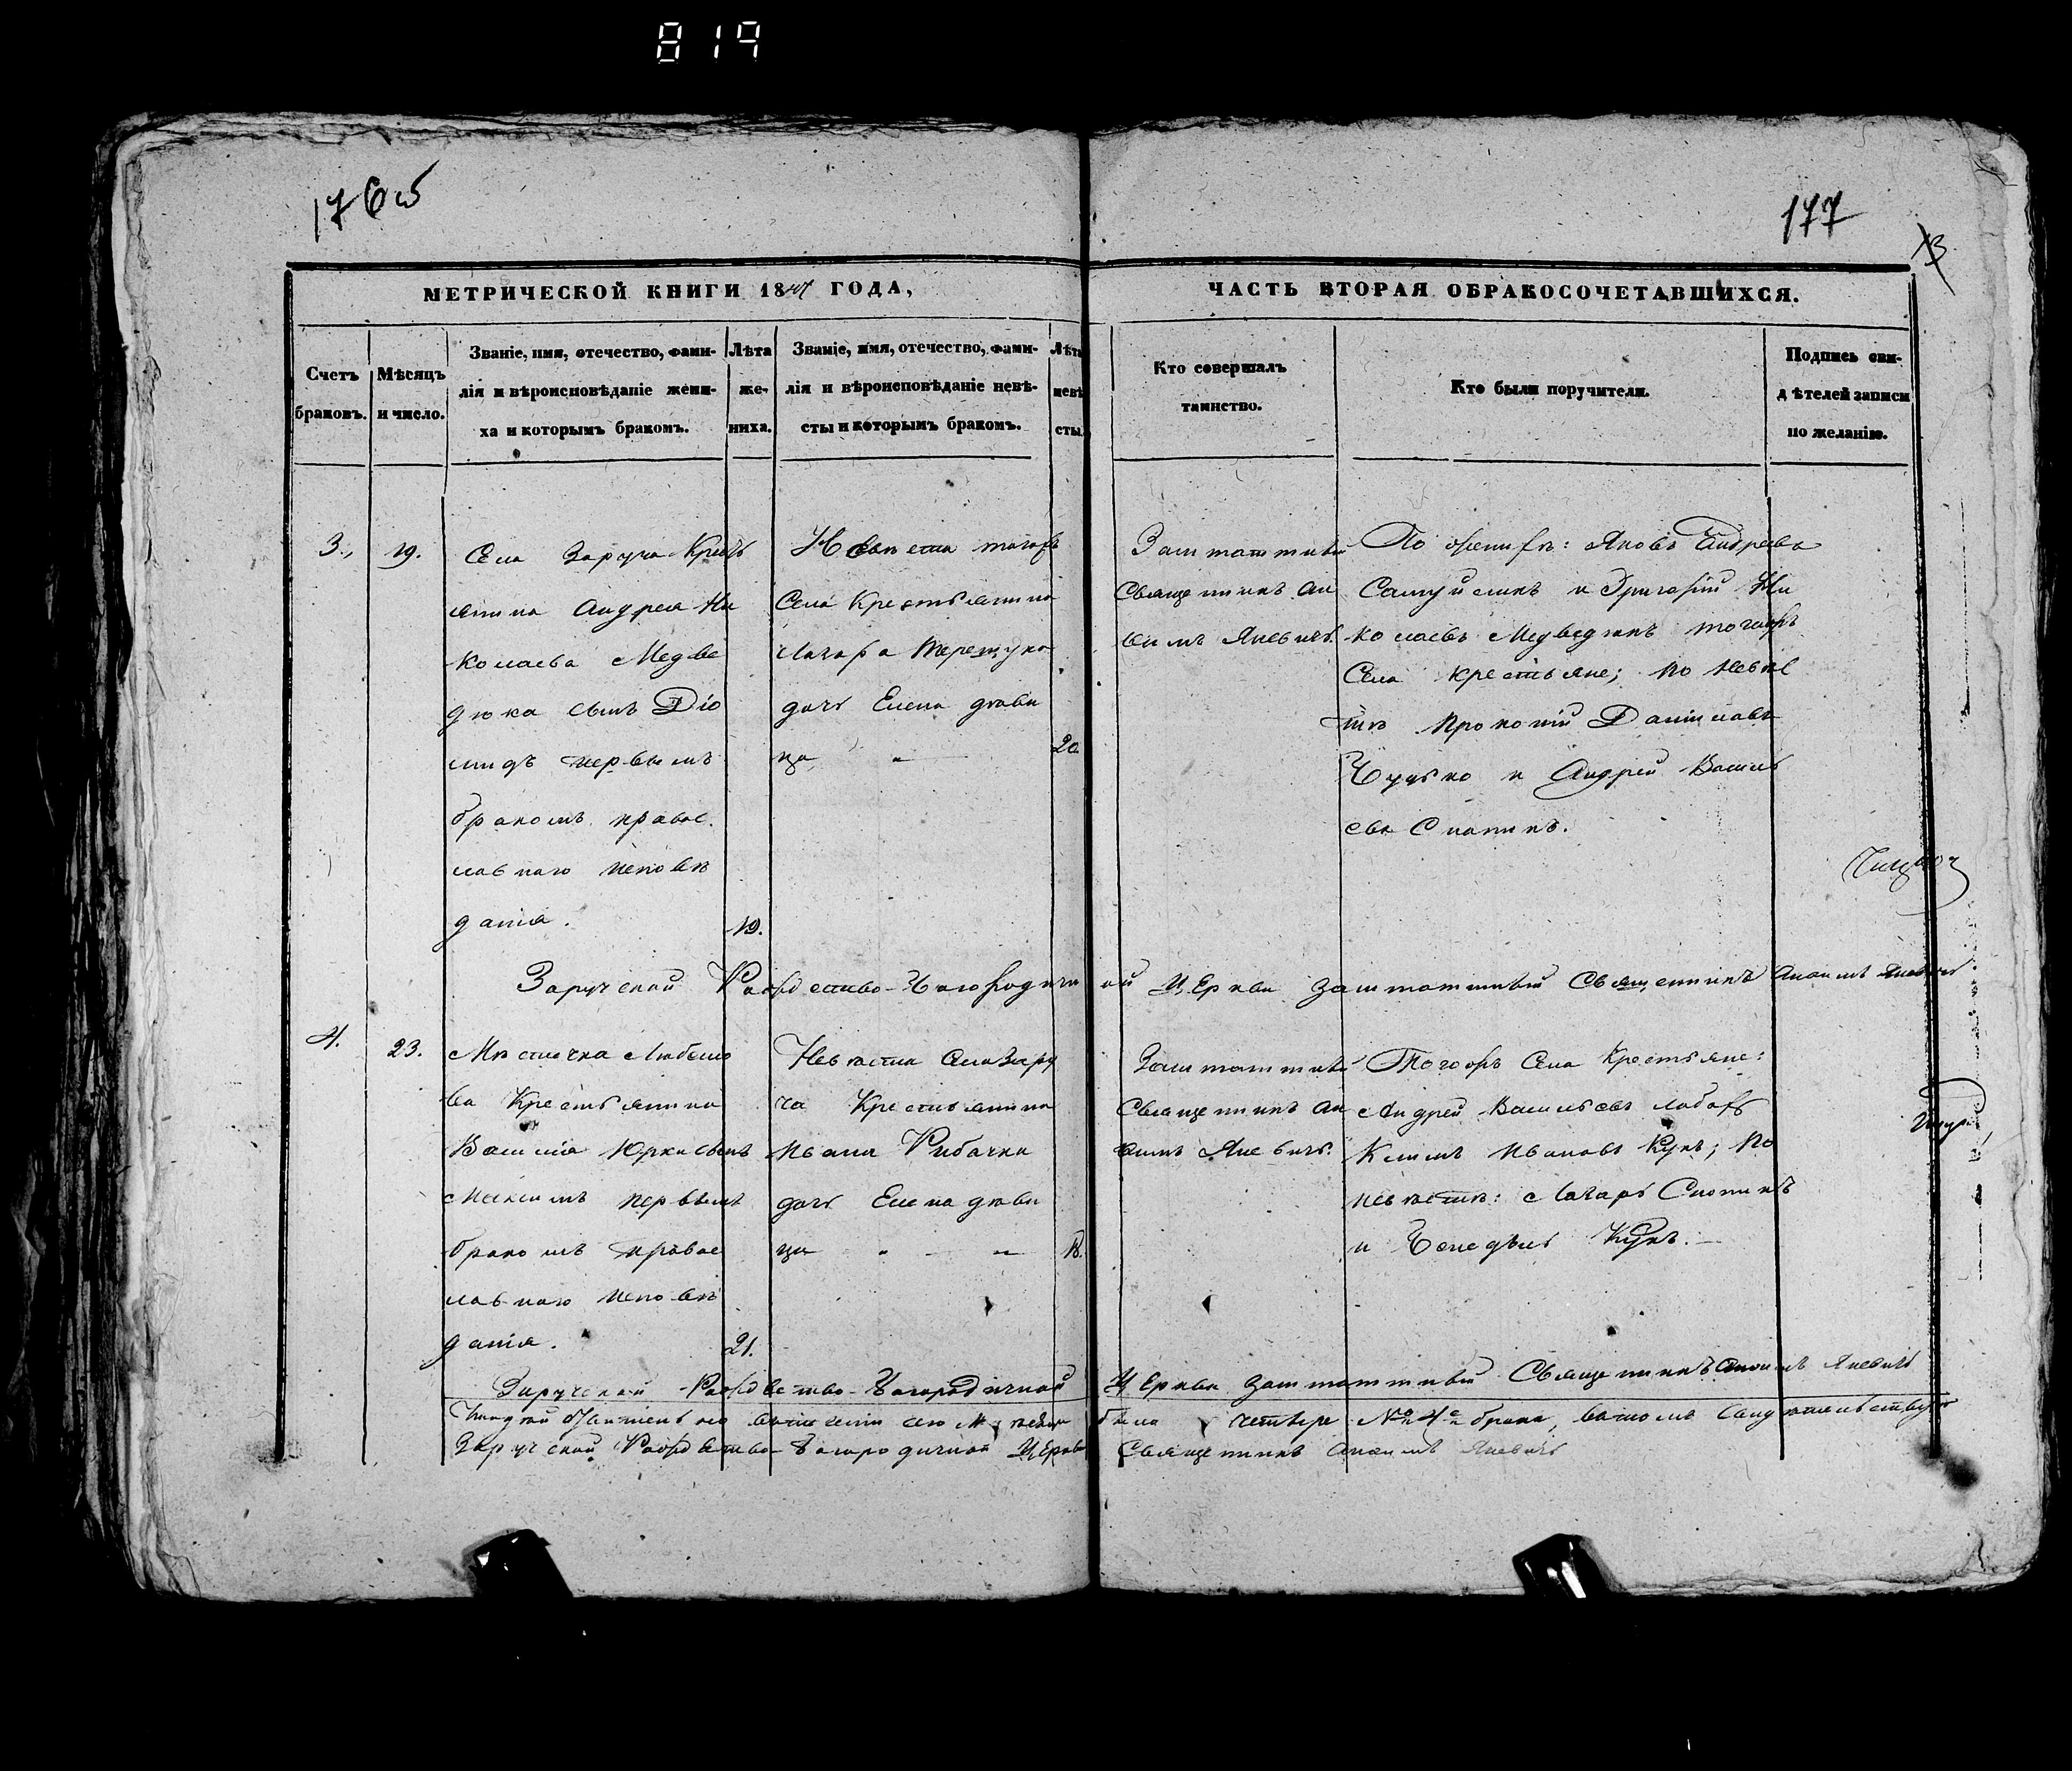 819
176об
177
МЕТРИЧЕСКОЙ КНИГИ 18 ГОДА,
ЧАСТЬ ВТОРАЯ ОБРАКОСОЧЕТАВШИХСЯ.
Счетъ
браковъ.
Мѣсяцъ
и число.
Званіе, имя, отечество, фами-
лія и вѣроисповѣданіе жени-
ха и которымъ бракомъ.
Лѣта
же-
ниха.
Званіе, имя, отечество, фами-
лія и вѣроисповѣданіе невѣ-
сты и которымъ бракомъ.
Лѣта
невѣ
сты.
Кто совершалъ
таинство.
Кто были поручители.
Подпись сви-
дѣтелей записи
по желанію.
3.
19.
Села Заруча Кресть
янина Андрея Ни
колаева Медве
дюка сынъ Діо
мидъ первымъ
бракомъ правос
лавнаго исповѣ
данія.
19.
Невѣста тогожъ
Села Крестьянина
Лазара
дочь Елена дѣви
ца
20
Заштатный
Священникъ Ан
Яневичъ
По женихѣ: Яковъ Андреевъ
Самуйликъ и Григорій Ни
колаевъ Медведюкъ тогожъ
Села крестьяне; по невѣс
тѣ Прокопій Даниловъ
и Андрей Василь
евъ
Заручской Рождество-Богородичной Церкви Заштатный Священникъ Яневичъ
4.
23.
Мѣстечка Любешо
ва Крестьянина
Василія сынъ
Максимъ первымъ
бракомъ правос
лавнаго исповѣ
данія.
21.
Невѣста Села Зару
ча Крестьянина
Ивана Рибачка
дочь Елена дѣви
ца
18.
Заштатный
Священникъ Ан
Яневичъ.
Тогожъ Села Крестьяне:
Андрей Васильевъ
Климъ Ивановъ Кукъ; по
невѣстѣ: Лазарь
и Кукъ.
Заручской Рождество-Богородичной Церкви заштатный Священникъ Яневичъ
была четвере № 4 брака, въ томъ свидѣтельствую
Заручской Рождество-Богородичной Церкви Священникъ Яневичъ